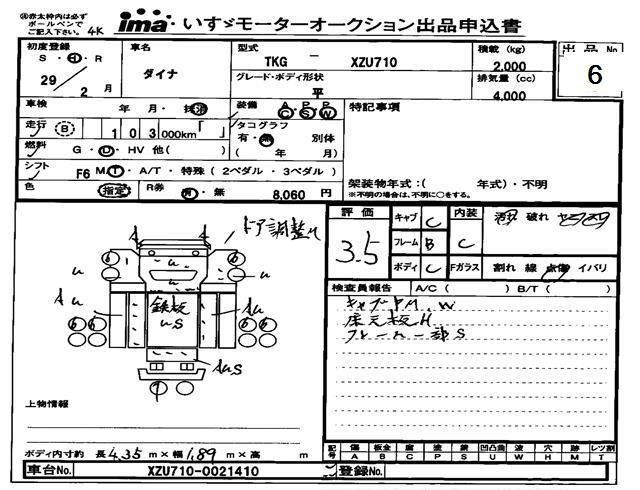 ㊟赤太枠内は必ず
ボールペンで
ご記入下さい。 4K
ima いすゞモーターオークション出品申込書
初度登録 車名 型式 積載 (kg) 出品 No
S・H・R ダイナ TKG － XZU710 2,000
29 / 2 月 グレード・ボディ形状 排気量 (cc) 6
平 4,000
車検 年 月・抹消 装備 A・P・P 特記事項
C S W
走行 B 103 000km「 」 タコグラフ
有・無 別体
燃料 G・D・HV 他( ) ( 年 月)
シフト F6 MT・A/T・特殊 (2ペダル・3ペダル)
架装物年式:( 年式)・不明
色 指定 R券 有・無 8,060 円 ※不明の場合は、不明に○をする。
評価 キャブ C 内装 破れ
3.5 フレーム B C
ボディ C Fガラス 割れ 線 点傷 イバリ
ドア調整H
4 4
6 6
u u
u
A u A u
鉄板
u S
6 6 6 6
A u S
検査員報告 A/C ( ) B/T ( )
キャブ P M . W
床元板 H
フレーム一部 S
上物情報
ボディ内寸約 長 4.35 m × 幅 1.89 m × 高 m
記号 傷 板金 腐 塗 錆 凹凸曲 波 穴 跡 レツ割
A B C P S U W H M T
車台No. XZU710-0021410 登録No.